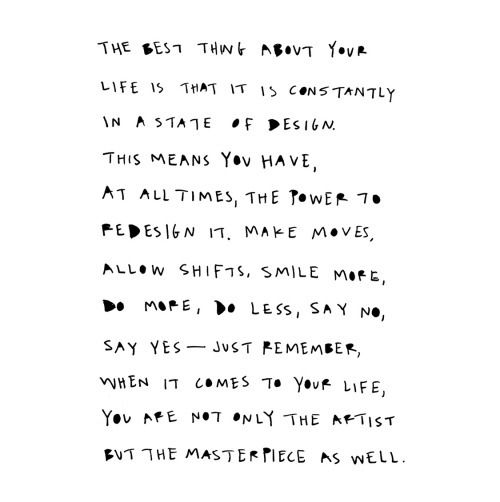 THE BEST THING ABOUT YOUR
LIFE IS THAT IT IS CONSTANTLY
IN A STATE OF DESIGN.
THIS MEANS YOU HAVE,
AT ALL TIMES, THE POWER TO
REDESIGN IT. MAKE MOVES,
ALLOW SHIFTS, SMILE MORE,
DO MORE, DO LESS, SAY NO,
SAY YES — JUST REMEMBER,
WHEN IT COMES TO YOUR LIFE,
YOU ARE NOT ONLY THE ARTIST
BUT THE MASTERPIECE AS WELL.